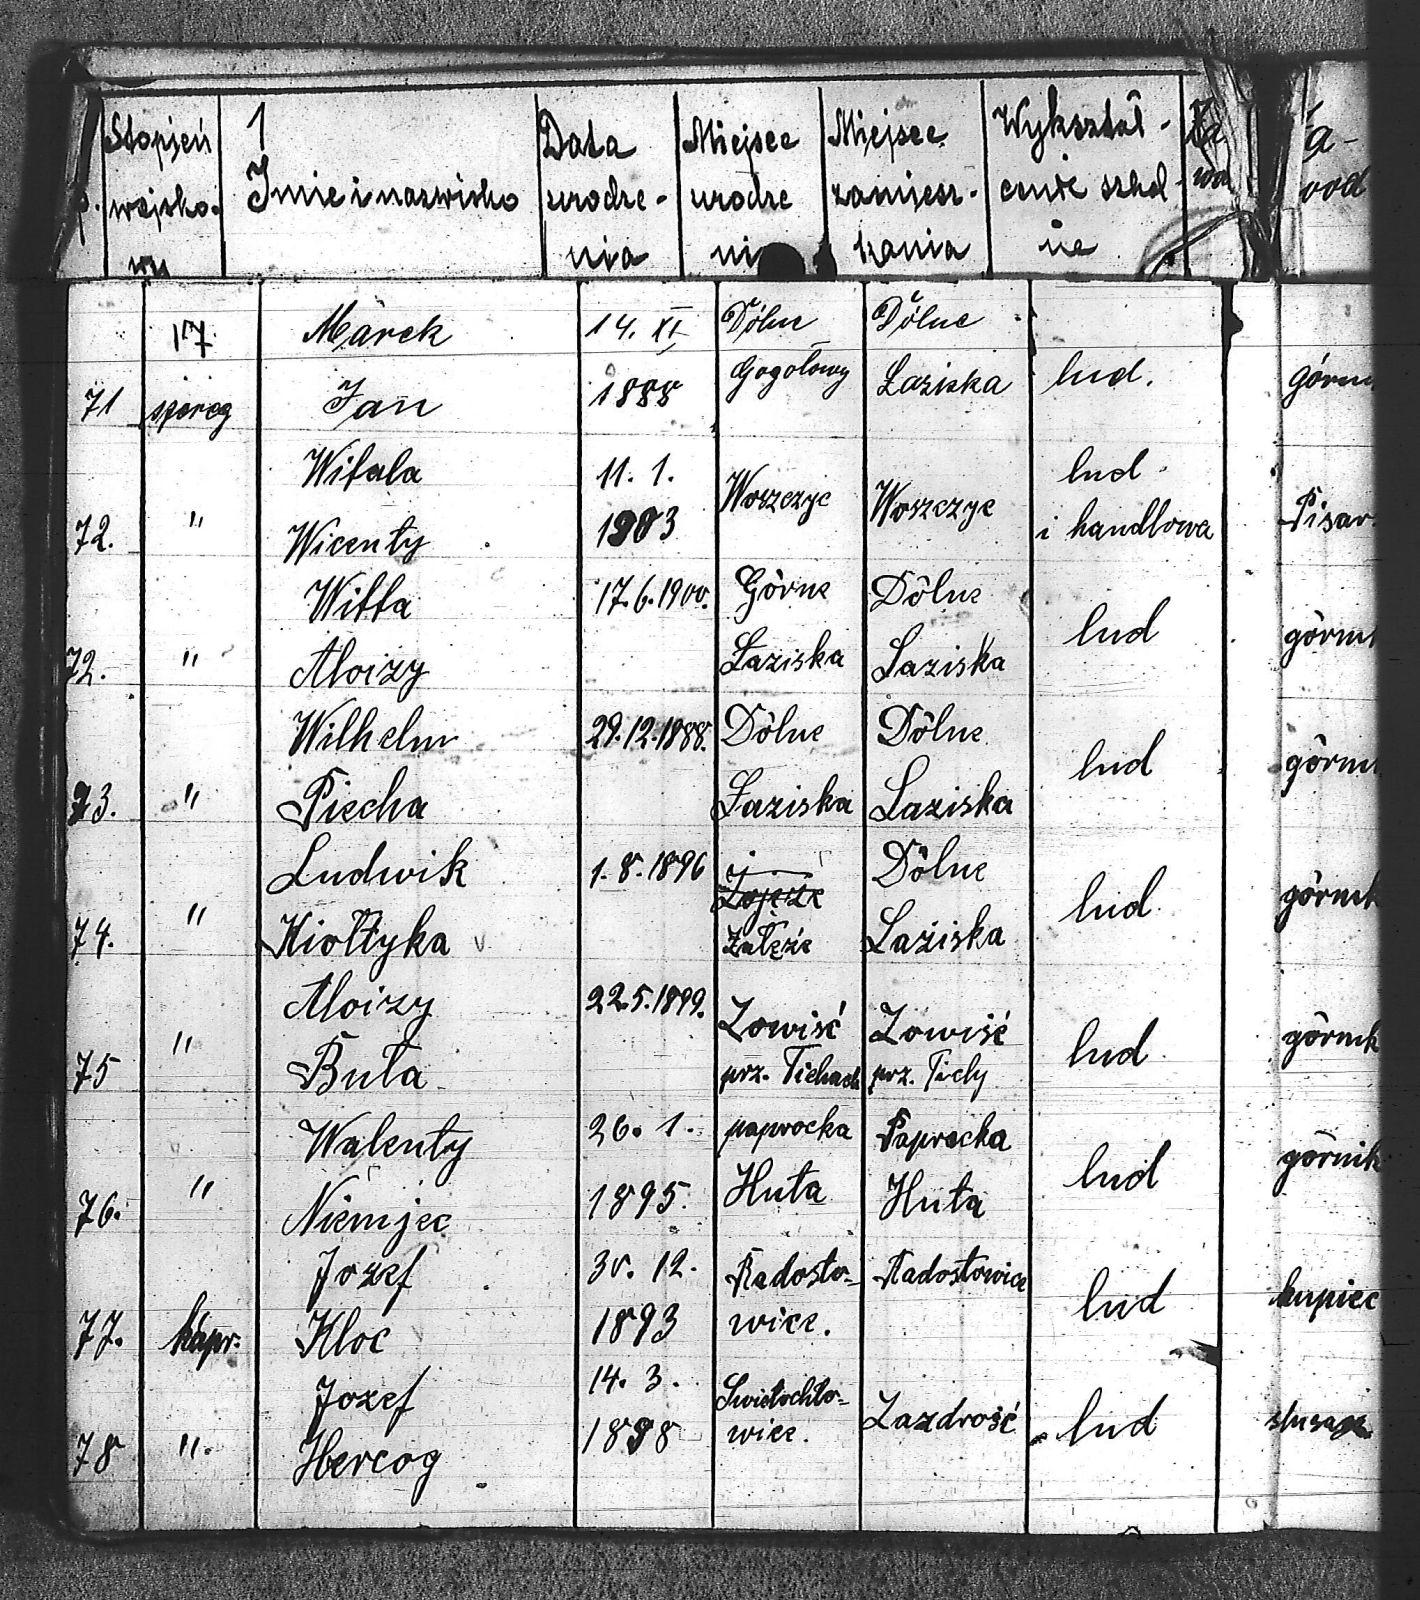 Stopień 1 Data Miejsce Miejsce Wykształ- Za
wojsko- Imie i nazwisko urodze- urodze zamiesz- cenie szkol wo
wy nia ni kania ne
a-
wod
17 Marek 14. XI Dólne Dólne
71 szereg Jan 1888 Gogołowy Łaziska lud. górni
Witala 11. 1. lud.
72. " Wicenty 1903 Woszczyc Woszczyc i handlowa Pisar
Witta 17.6.1900. Górne Dólne
72. " Aloizy Łaziska Łaziska lud górnik
Wilhelm 29.12.1888. Dólne Dólne
73. " Piecha Łaziska Łaziska lud górni
Ludwik 1.8.1896 Dólne
74. " Kiołtyka Załęże Łaziska lud. górnik
Aloizy 22.5.1899. Zowiść Zowiść
75 " Buła prz. Tichach prz. Tichy lud. górnik
Walenty 26. 1. paprocka Paprocka
76. " Niemjec 1895. Huta Huta lud górnik
Jozef 30. 12. Radosto- Radostowice
77. kapr. Kloc 1893 wice. lud kupiec
Jozef 14. 3. Swietochło-
78 ". Hercog 1898 wice. Zazdrość lud